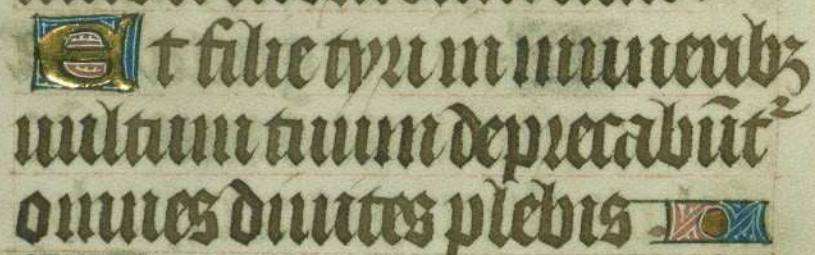 Et filie tyri in muneribꝫ
uultum tuum deprecabūt᷑
omnes diuites plebis